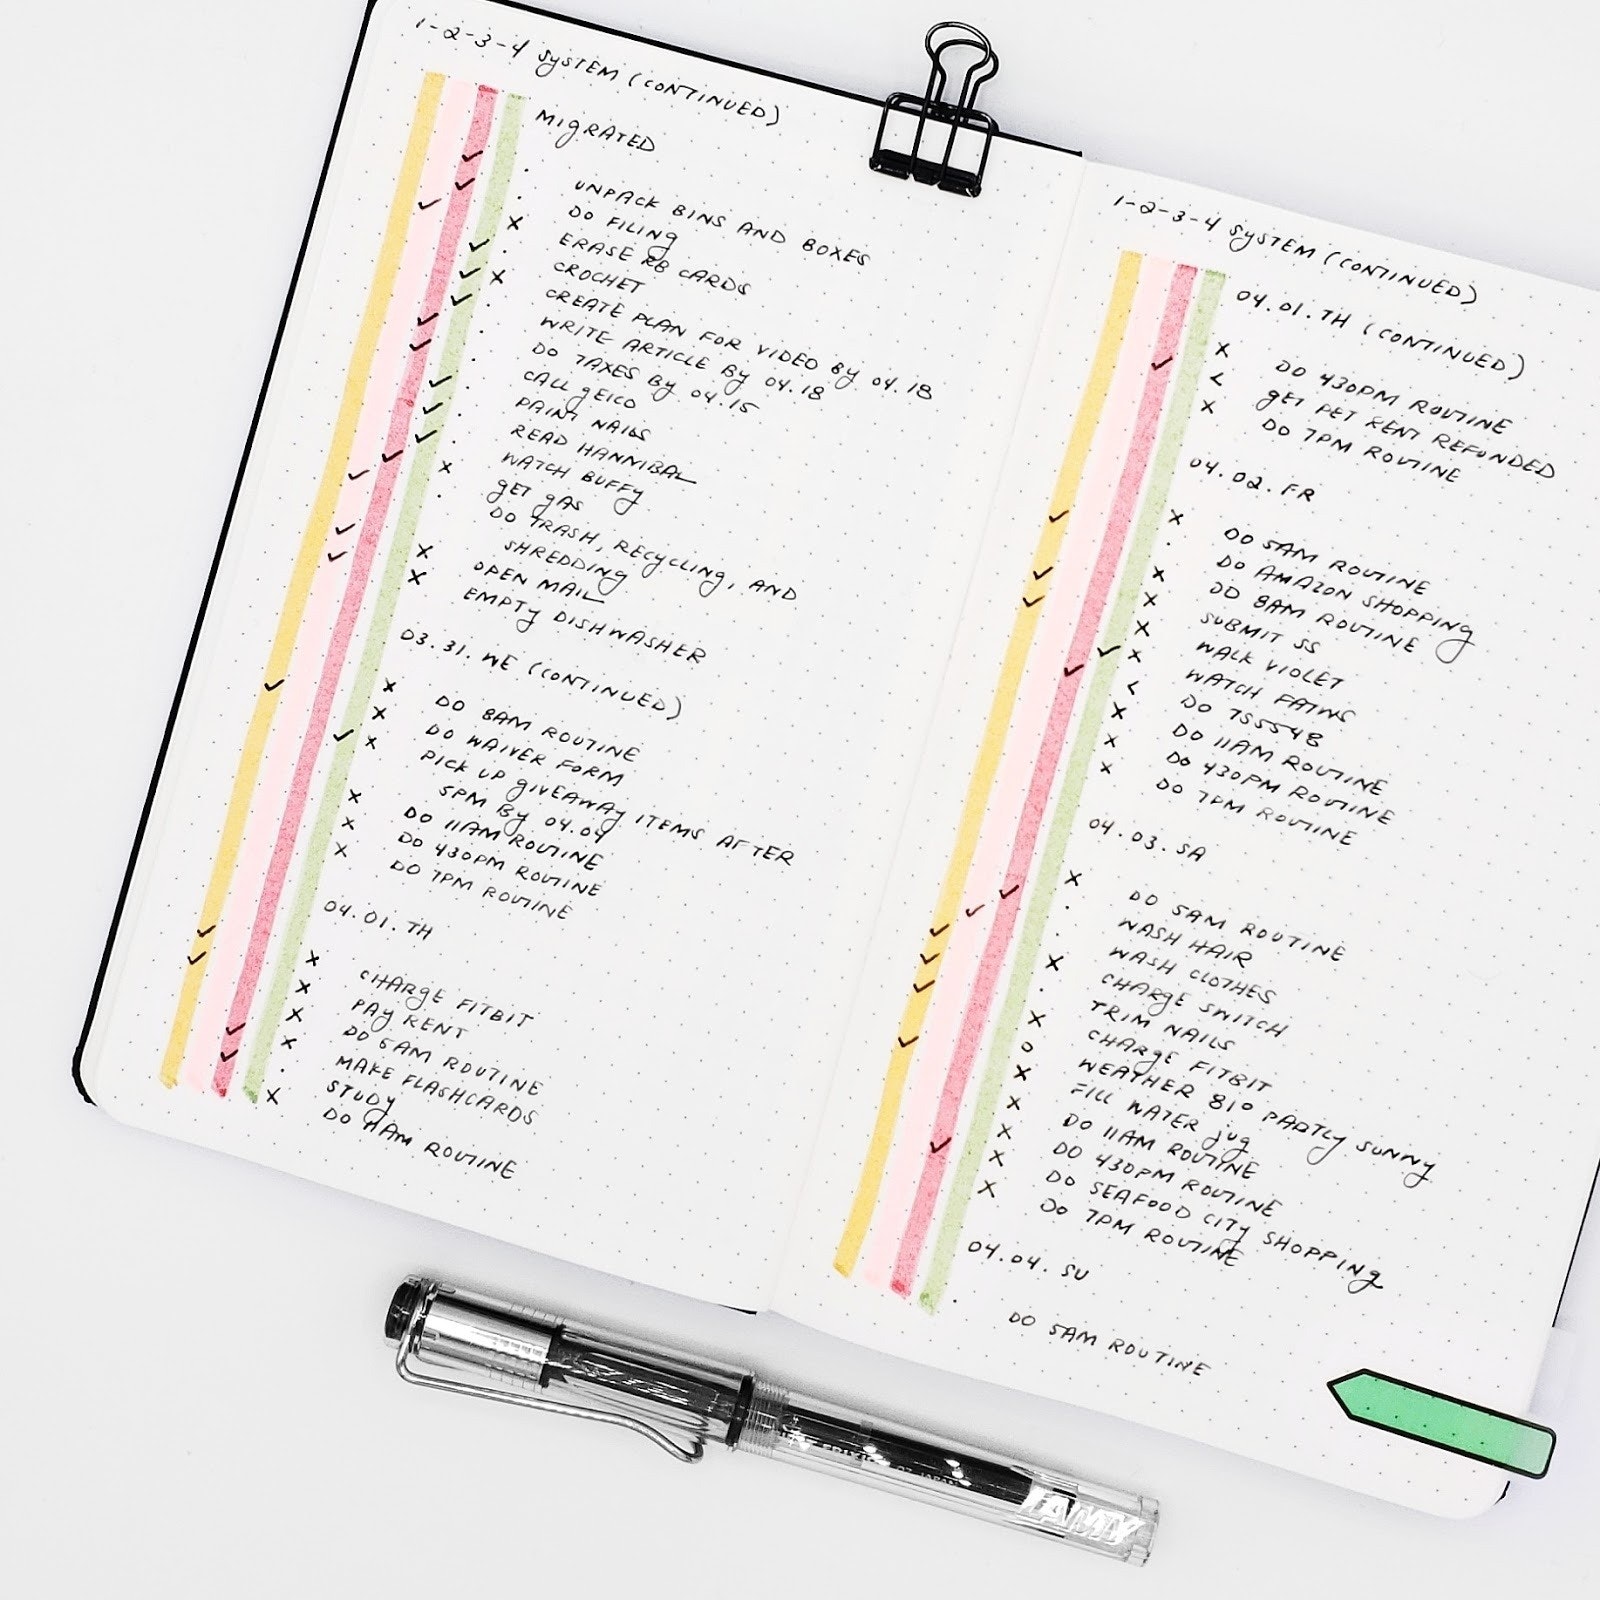 1-2-3-4 SYSTEM (CONTINUED)
MIGRATED
✓ · UNPACK BINS AND BOXES
✓ · DO FILING
✓ × ERASE RB CARDS
✓ · CROCHET
✓ × CREATE PLAN FOR VIDEO BY 04.18
✓ · WRITE ARTICLE BY 04.18
✓ · DO TAXES BY 04.15
✓ · CALL GEICO
✓ · PAINT NAILS
✓ · READ HANNIBAL
✓ · WATCH BUFFY
✓ × GET GAS
✓ · DO TRASH, RECYCLING, AND
SHREDDING
✓ × OPEN MAIL
✓ × EMPTY DISHWASHER
03.31.WE (CONTINUED)
✓ × DO 8AM ROUTINE
× DO WAIVER FORM
✓ × PICK UP GIVEAWAY ITEMS AFTER
5PM BY 04.04
× DO 11AM ROUTINE
× DO 430PM ROUTINE
× DO 7PM ROUTINE
04.01.TH
✓ × CHARGE FITBIT
✓ × PAY RENT
× DO 5AM ROUTINE
✓ × MAKE FLASHCARDS
✓ · STUDY
× DO 11AM ROUTINE
1-2-3-4 SYSTEM (CONTINUED)
04.01.TH (CONTINUED)
× DO 430PM ROUTINE
✓ < GET PET RENT REFUNDED
× DO 7PM ROUTINE
04.02.FR
× DO 5AM ROUTINE
✓ · DO AMAZON SHOPPING
× DO 8AM ROUTINE
✓ × SUBMIT SS
✓ × WALK VIOLET
✓ × WATCH FATWS
✓ < DO 755548
× DO 11AM ROUTINE
× DO 430PM ROUTINE
× DO 7PM ROUTINE
04.03.SA
× DO 5AM ROUTINE
✓ · WASH HAIR
✓ · WASH CLOTHES
✓ × CHARGE SWITCH
✓ · TRIM NAILS
✓ × CHARGE FITBIT
o WEATHER 81° PARTLY SUNNY
✓ × FILL WATER JUG
× DO 11AM ROUTINE
× DO 430PM ROUTINE
✓ × DO SEAFOOD CITY SHOPPING
× DO 7PM ROUTINE
04.04.SU
· DO 5AM ROUTINE
LAMY